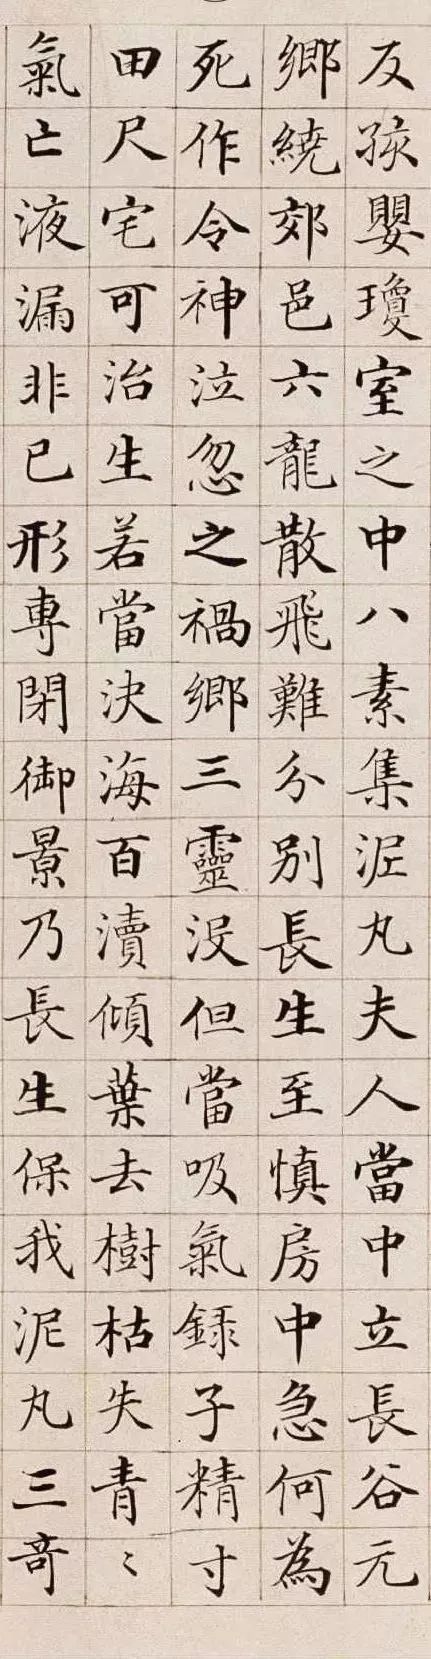 反孩嬰瓊室之中八素集泥丸夫人當中立長谷元
鄉繞郊邑六龍散飛難分別長生至慎房中急何為
死作令神泣忽之禍鄉三靈沒但當吸氣録子精寸
田尺宅可治生若當決海百瀆傾葉去樹枯失青〻
氣亡液漏非已形專閉御景乃長生保我泥丸三奇